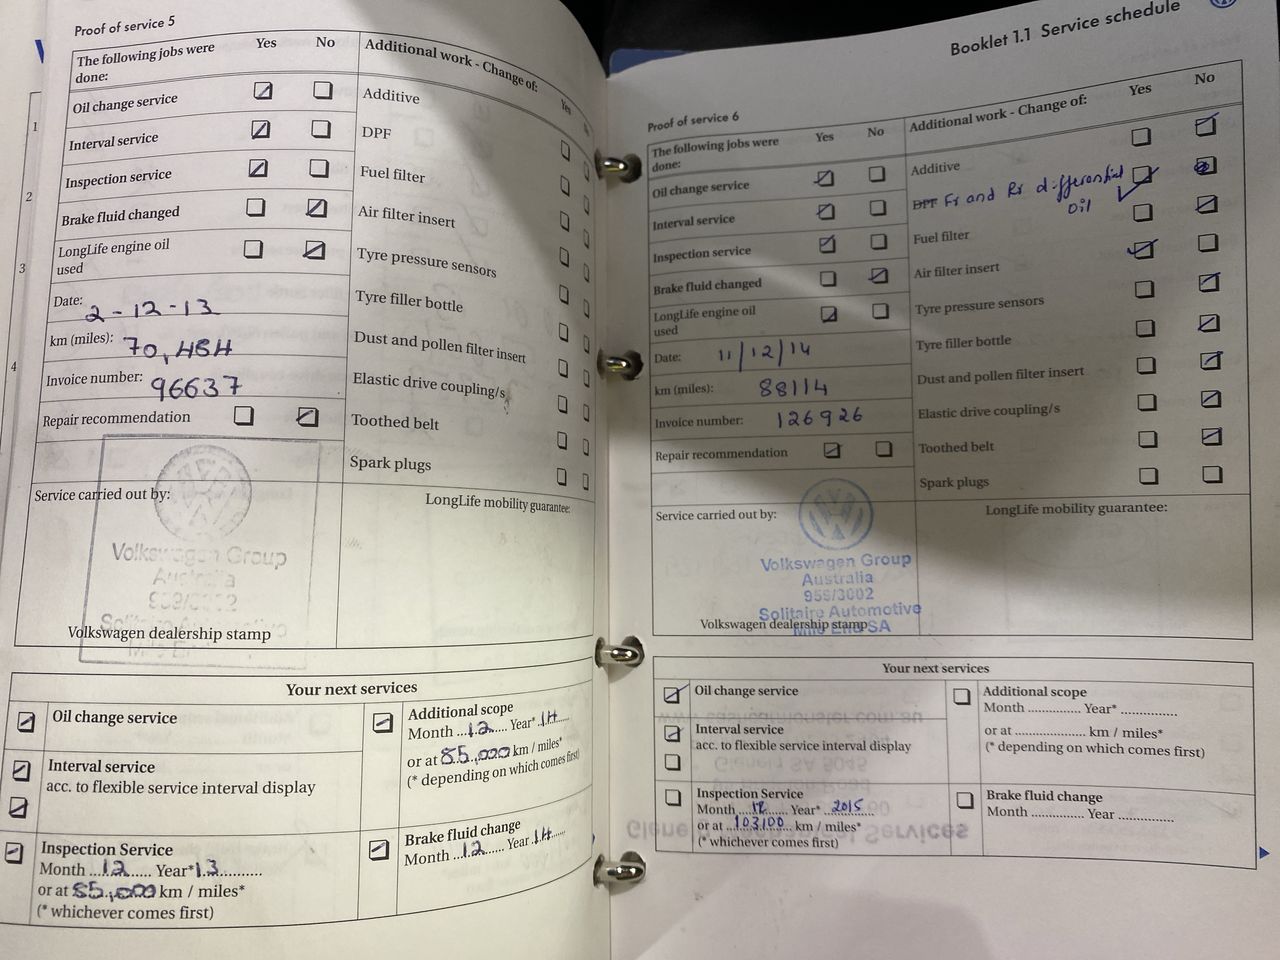 Proof of service 5
The following jobs were
done:
Yes
No
Oil change service
Interval service
Inspection service
Brake fluid changed
LongLife engine oil
used
Date: 2-12-13
km (miles): 70,484
Invoice number: 96637
Repair recommendation
Additional work - Change of:
Yes
Additive
DPF
Fuel filter
Air filter insert
Tyre pressure sensors
Tyre filler bottle
Dust and pollen filter insert
Elastic drive coupling/s
Toothed belt
Spark plugs
Service carried out by:
LongLife mobility guarantee:
Volkswagen Group
Australia
Volkswagen dealership stamp
Your next services
Oil change service
Interval service
acc. to flexible service interval display
Inspection Service
Month ...12...... Year*13..........
or at 85,000 km / miles*
(* whichever comes first)
Additional scope
Month ...12...... Year*.14......
or at 85,000 km / miles*
(* depending on which comes first)
Brake fluid change
Month ...12...... Year 14......
Booklet 1.1 Service schedule
Proof of service 6
The following jobs were
done:
Yes
No
Oil change service
Interval service
Inspection service
Brake fluid changed
LongLife engine oil
used
Date: 11/12/14
km (miles): 88114
Invoice number: 126926
Repair recommendation
Additional work - Change of:
Yes
No
Additive
DPF Fr and Rr differential
oil
Fuel filter
Air filter insert
Tyre pressure sensors
Tyre filler bottle
Dust and pollen filter insert
Elastic drive coupling/s
Toothed belt
Spark plugs
Service carried out by:
LongLife mobility guarantee:
Volkswagen Group
Australia
959/3002
Solitaire Automotive
Mile End SA
Volkswagen dealership stamp
Your next services
Oil change service
Interval service
acc. to flexible service interval display
Inspection Service
Month ....12....... Year* ..2015......
or at ..103100.. km / miles*
(* whichever comes first)
Additional scope
Month .............. Year* ...............
or at .................. km / miles*
(* depending on which comes first)
Brake fluid change
Month .............. Year ...............
1
2
3
4